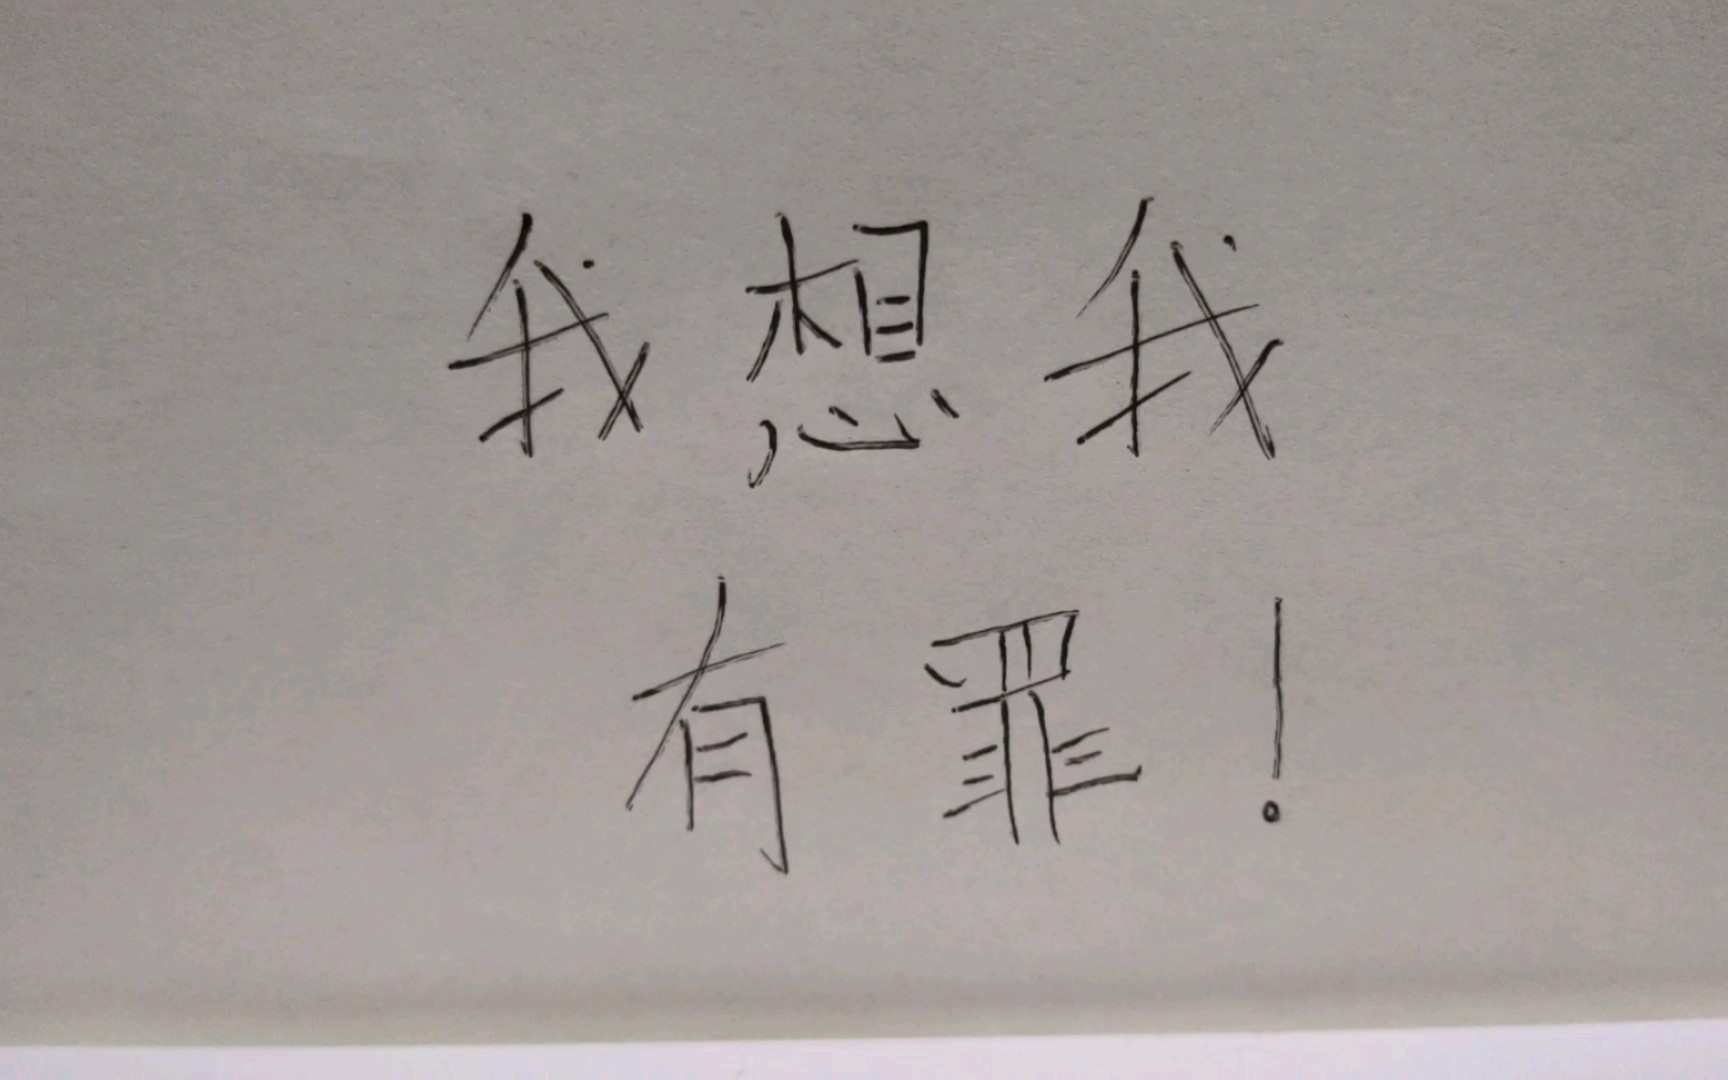 我想我
有罪！